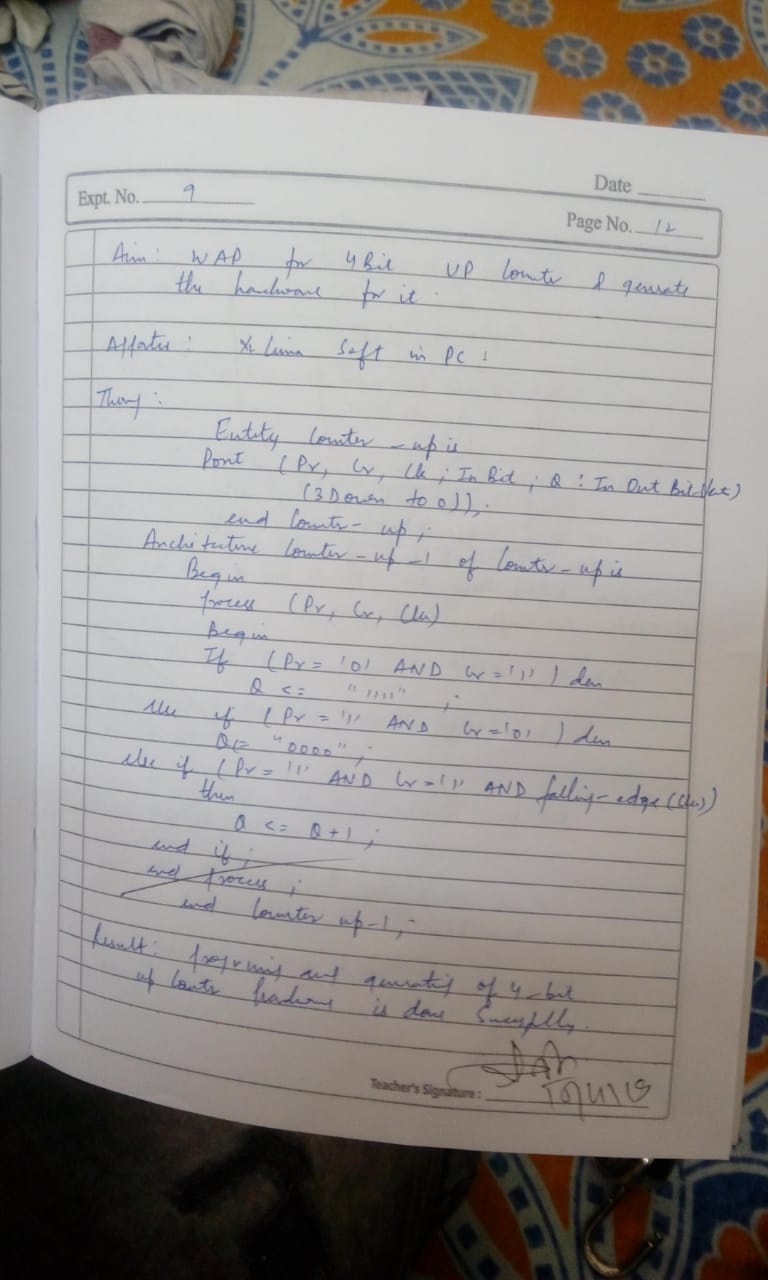 Date
Expt. No. 9
Page No. 12
Aim: WAP for 4 Bit UP Counter & generate
the hardware for it.
Xilinx Soft in PC
Theory:
Entity Counter - up is
Port (Pr, Cr, Clk ; In Bit ; Q : In Out Bit_Vect)
(3 Down to 0));
end Counter - up ;
Architecture Counter - up - 1 of Counter - up is
Begin
Process (Pr, Cr, Clk)
Begin
If (Pr = '0' AND Cr = '1' ) den
Q <= "1111" ;
else if (Pr = '1' AND Cr = '0' ) den
Q <= "0000" ;
else if (Pr = '1' AND Cr = '1' AND falling - edge (Clk))
then
Q <= Q + 1 ;
end if ;
end process ;
end Counter up - 1 ;
Result: and generating of 4 - bit
up Counter hardware is done Sucessfully.
Teacher's Signature :